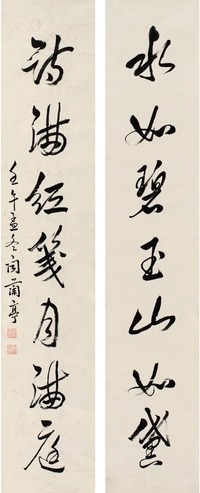 水如碧玉山如黛
詩滿紅箋月滿庭
壬午孟冬閔蘭亭